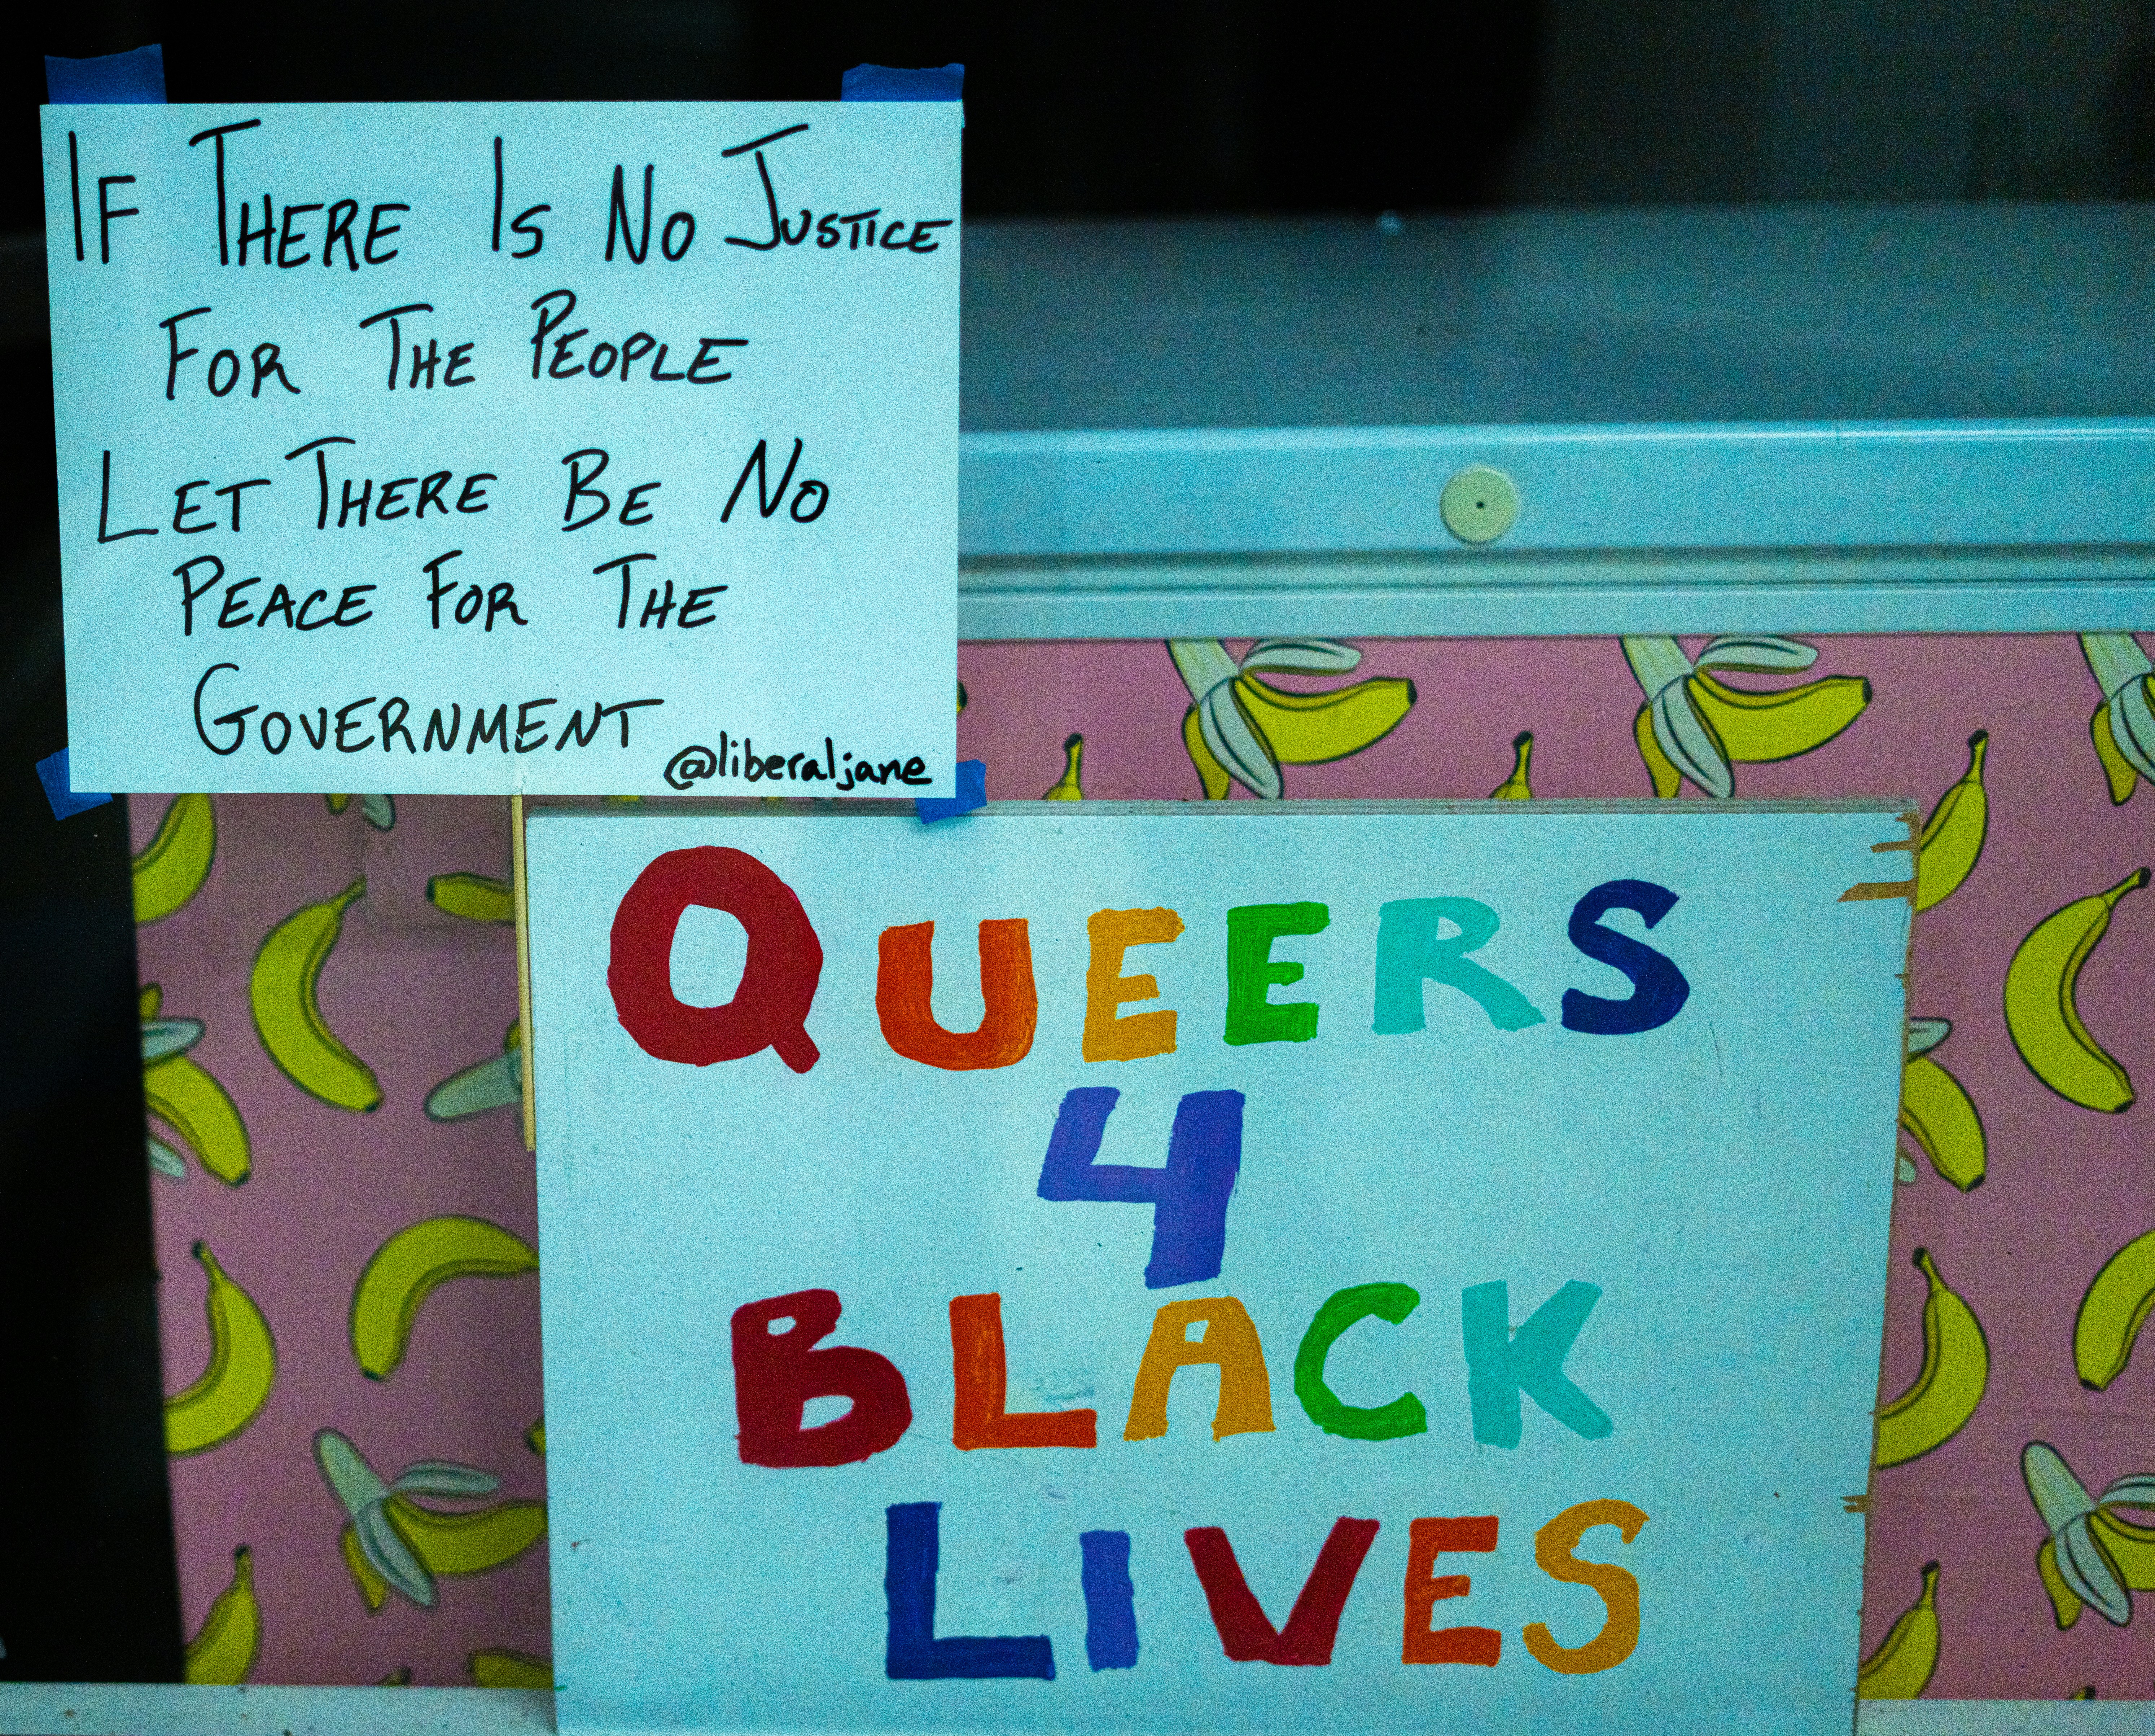 IF THERE IS NO JUSTICE
FOR THE PEOPLE
LET THERE BE NO
PEACE FOR THE
GOVERNMENT
@liberaljane
QUEERS
4
BLACK
LIVES